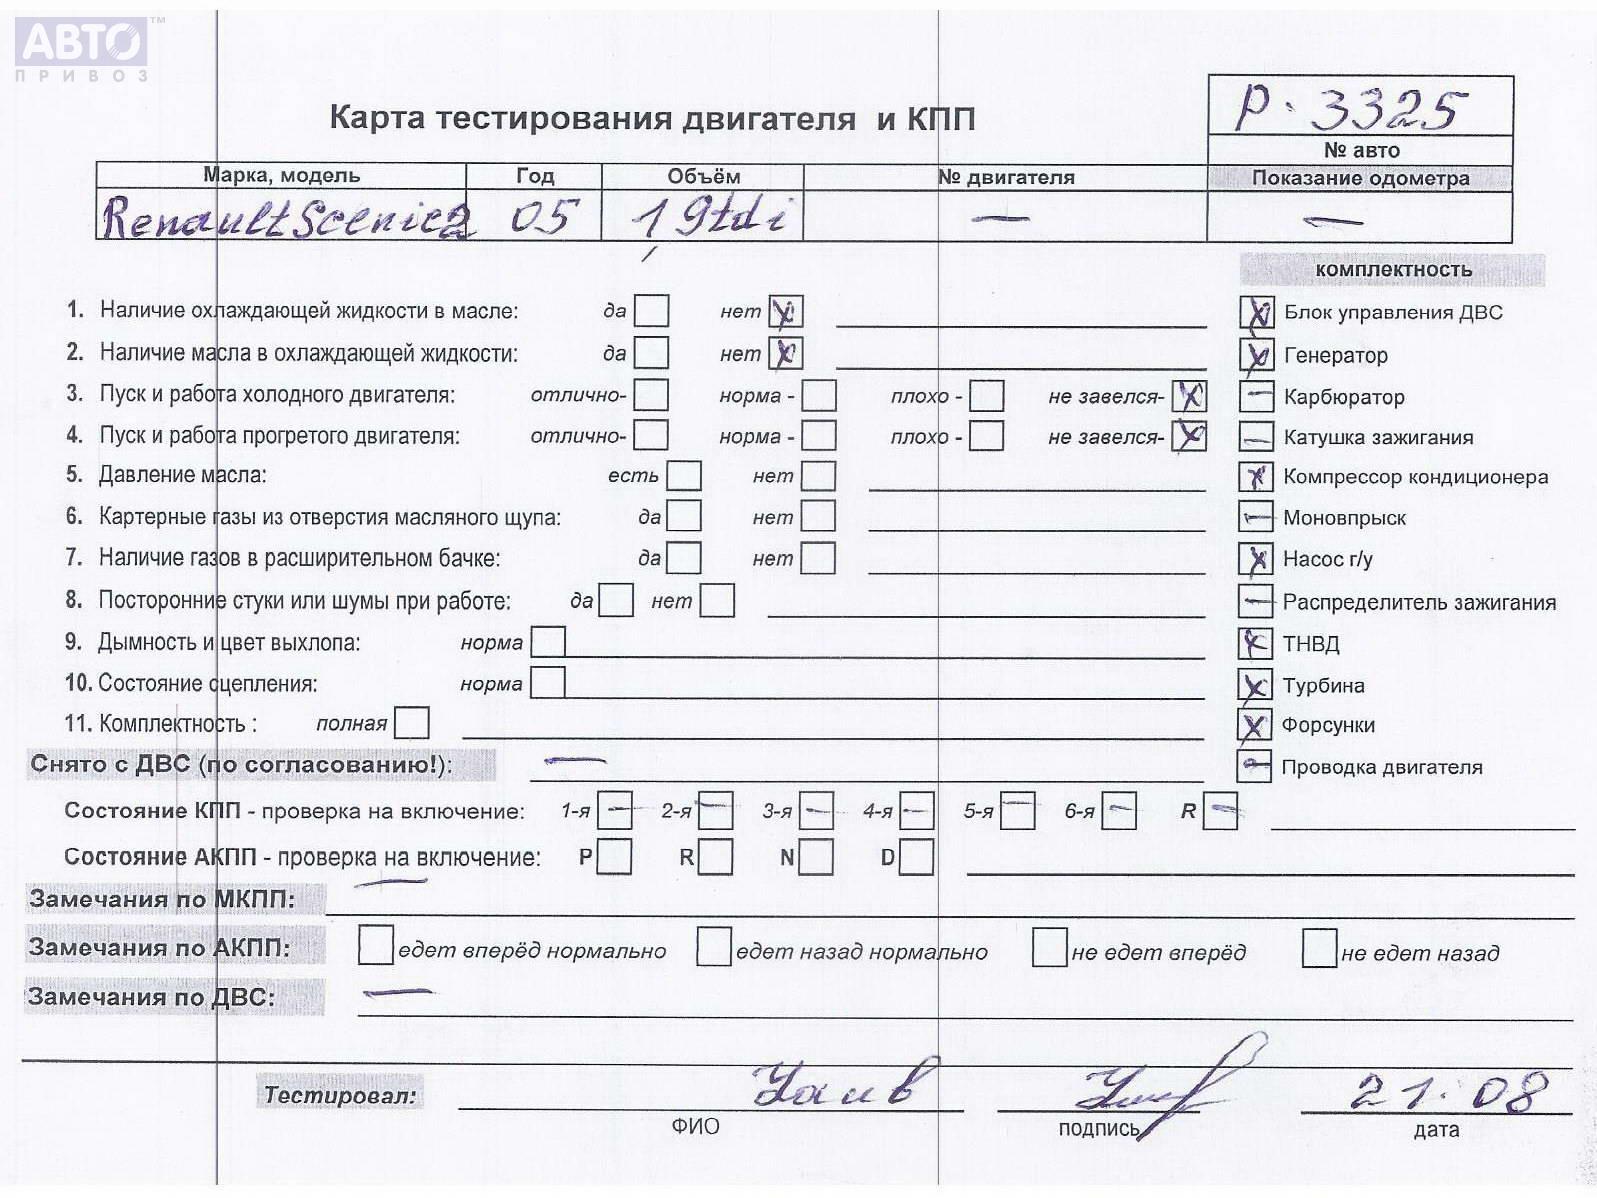 АВТО ™
ПРИВОЗ
Р. 3325
Карта тестирования двигателя и КПП
№ авто
Марка, модель Год Объём № двигателя Показание одометра
Renault Scenic2 05 1,9tdi — —
комплектность
1. Наличие охлаждающей жидкости в масле: да нет x
x Блок управления ДВС
2. Наличие масла в охлаждающей жидкости: да нет x
x Генератор
3. Пуск и работа холодного двигателя: отлично- норма - плохо - не завелся- x
— Карбюратор
4. Пуск и работа прогретого двигателя: отлично- норма - плохо - не завелся- x
— Катушка зажигания
5. Давление масла: есть нет
x Компрессор кондиционера
6. Картерные газы из отверстия масляного щупа: да нет
— Моновпрыск
7. Наличие газов в расширительном бачке: да нет
x Насос г/у
8. Посторонние стуки или шумы при работе: да нет
— Распределитель зажигания
9. Дымность и цвет выхлопа: норма
x ТНВД
10. Состояние сцепления: норма
x Турбина
11. Комплектность : полная
x Форсунки
Снято с ДВС (по согласованию!): —
— Проводка двигателя
Состояние КПП - проверка на включение: 1-я — 2-я — 3-я — 4-я — 5-я — 6-я — R —
Состояние АКПП - проверка на включение: P R N D
Замечания по МКПП: —
Замечания по АКПП: едет вперёд нормально едет назад нормально не едет вперёд не едет назад
Замечания по ДВС: —
Тестировал: 21.08
ФИО подпись дата